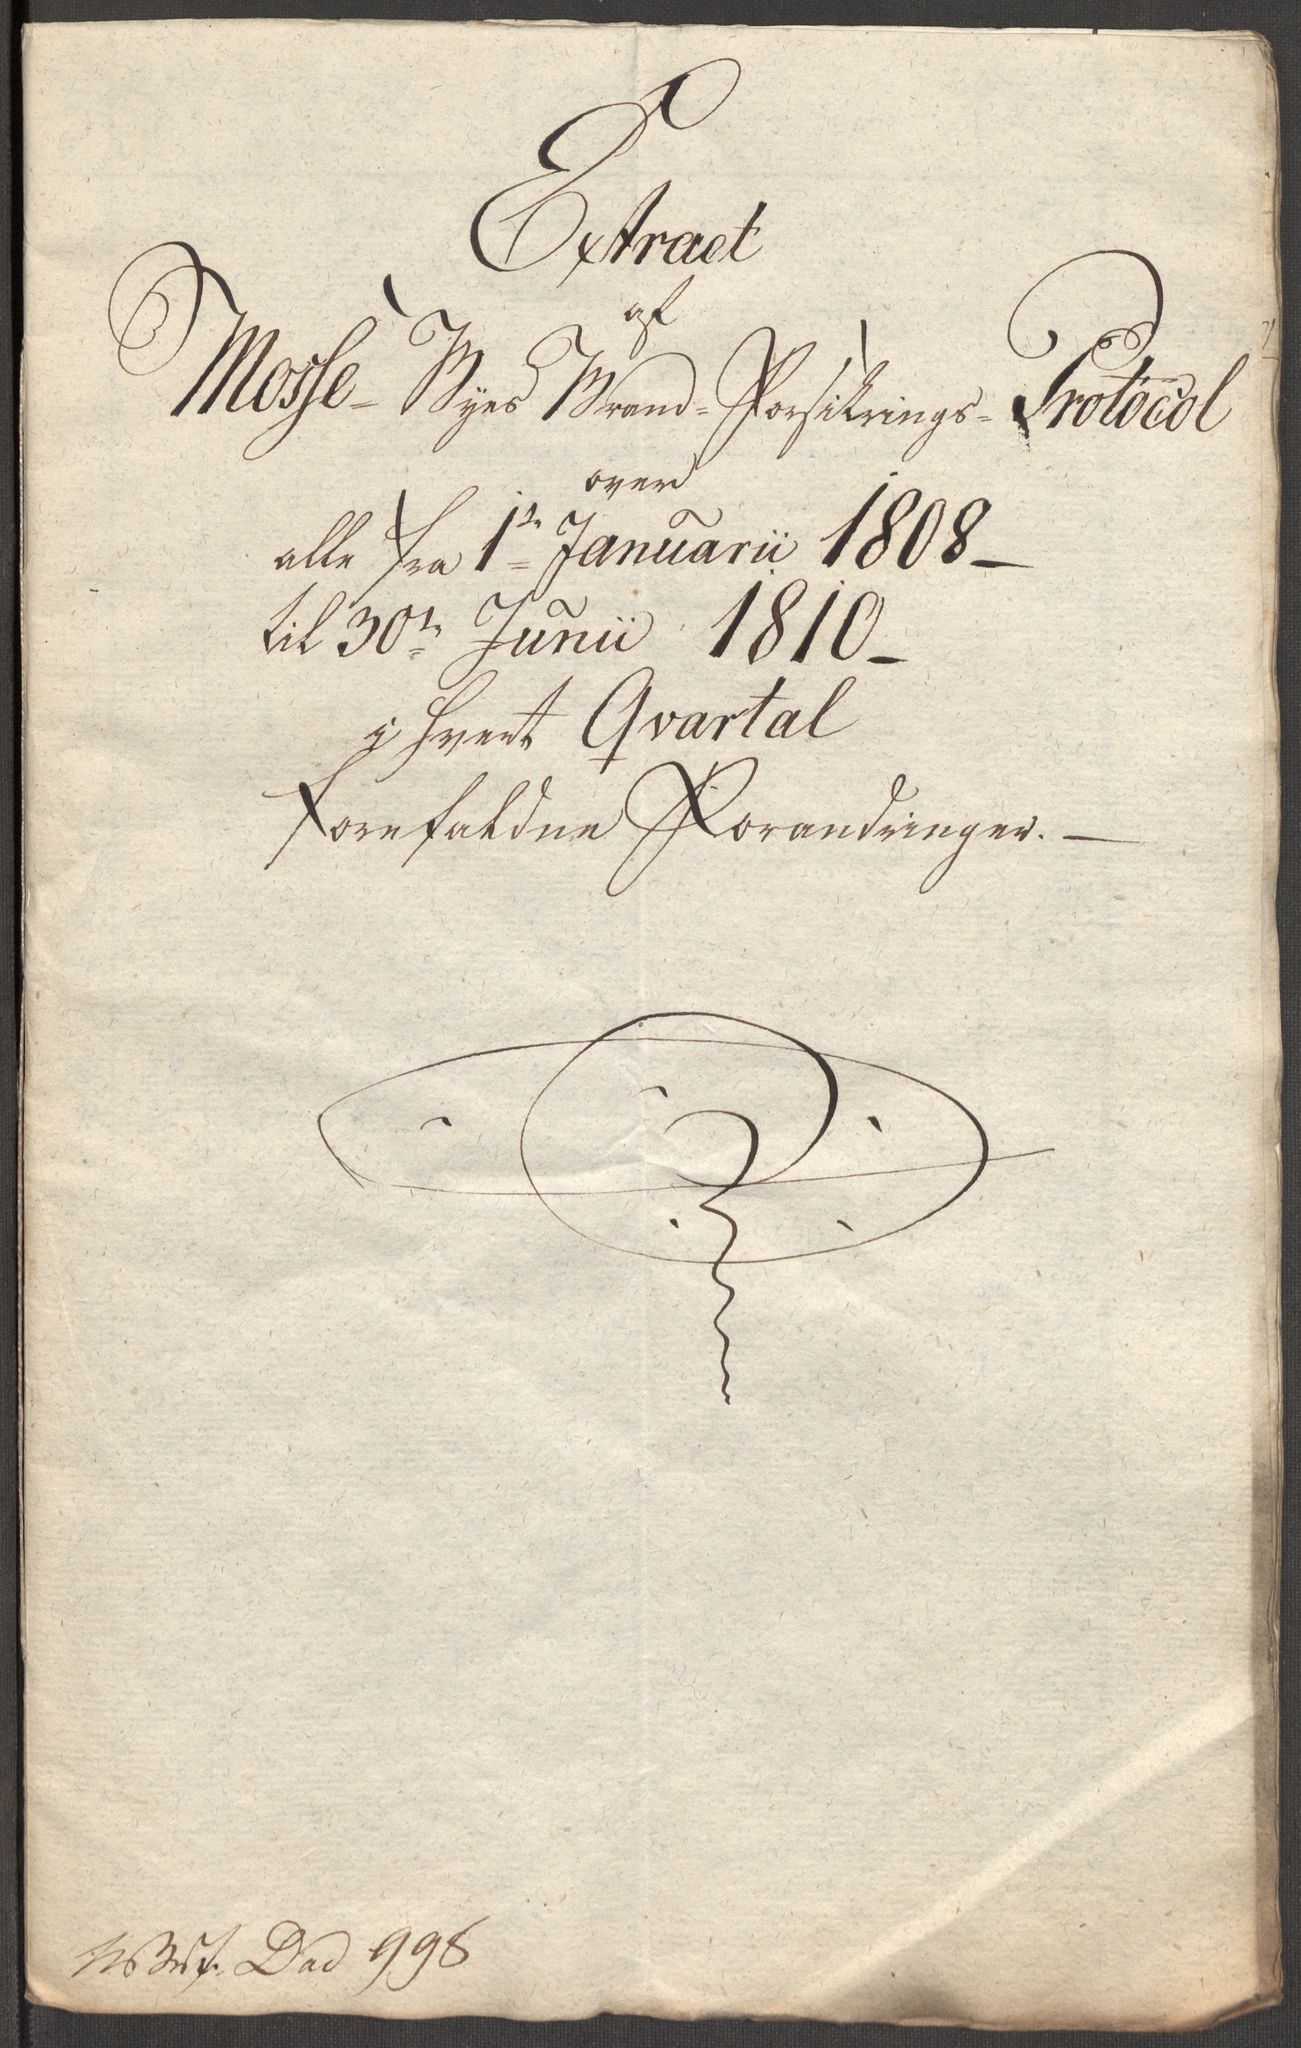 Extract
af
Mosse- Byes Brand-Forsikrings- Protocol
over
alle fra 1te Januarii 1808-
til 30te Junii 1810-
i hvert Qvartal
forefaldne Forandringer.-
Dad 998